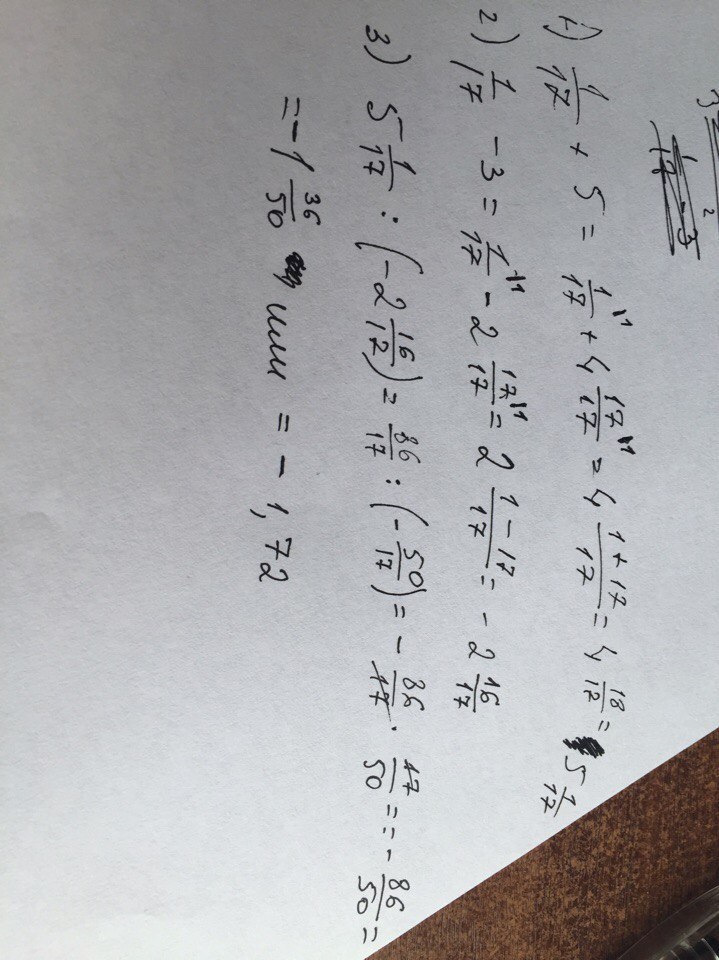 1) 1/17 + 5 = 1/17 + 4 17/17 = 4 (1+17)/17 = 4 18/17 = 5 1/17
2) 1/17 - 3 = 1/17 - 2 17/17 = 2 (1-17)/17 = -2 16/17
3) 5 1/17 : (-2 16/17) = 86/17 : (-50/17) = - 86/17 · 17/50 = = - 86/50 =
= -1 36/50 или = -1,72